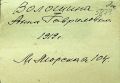 Волошина
Анна Гавриловна
1912г.
М. Морская 104.